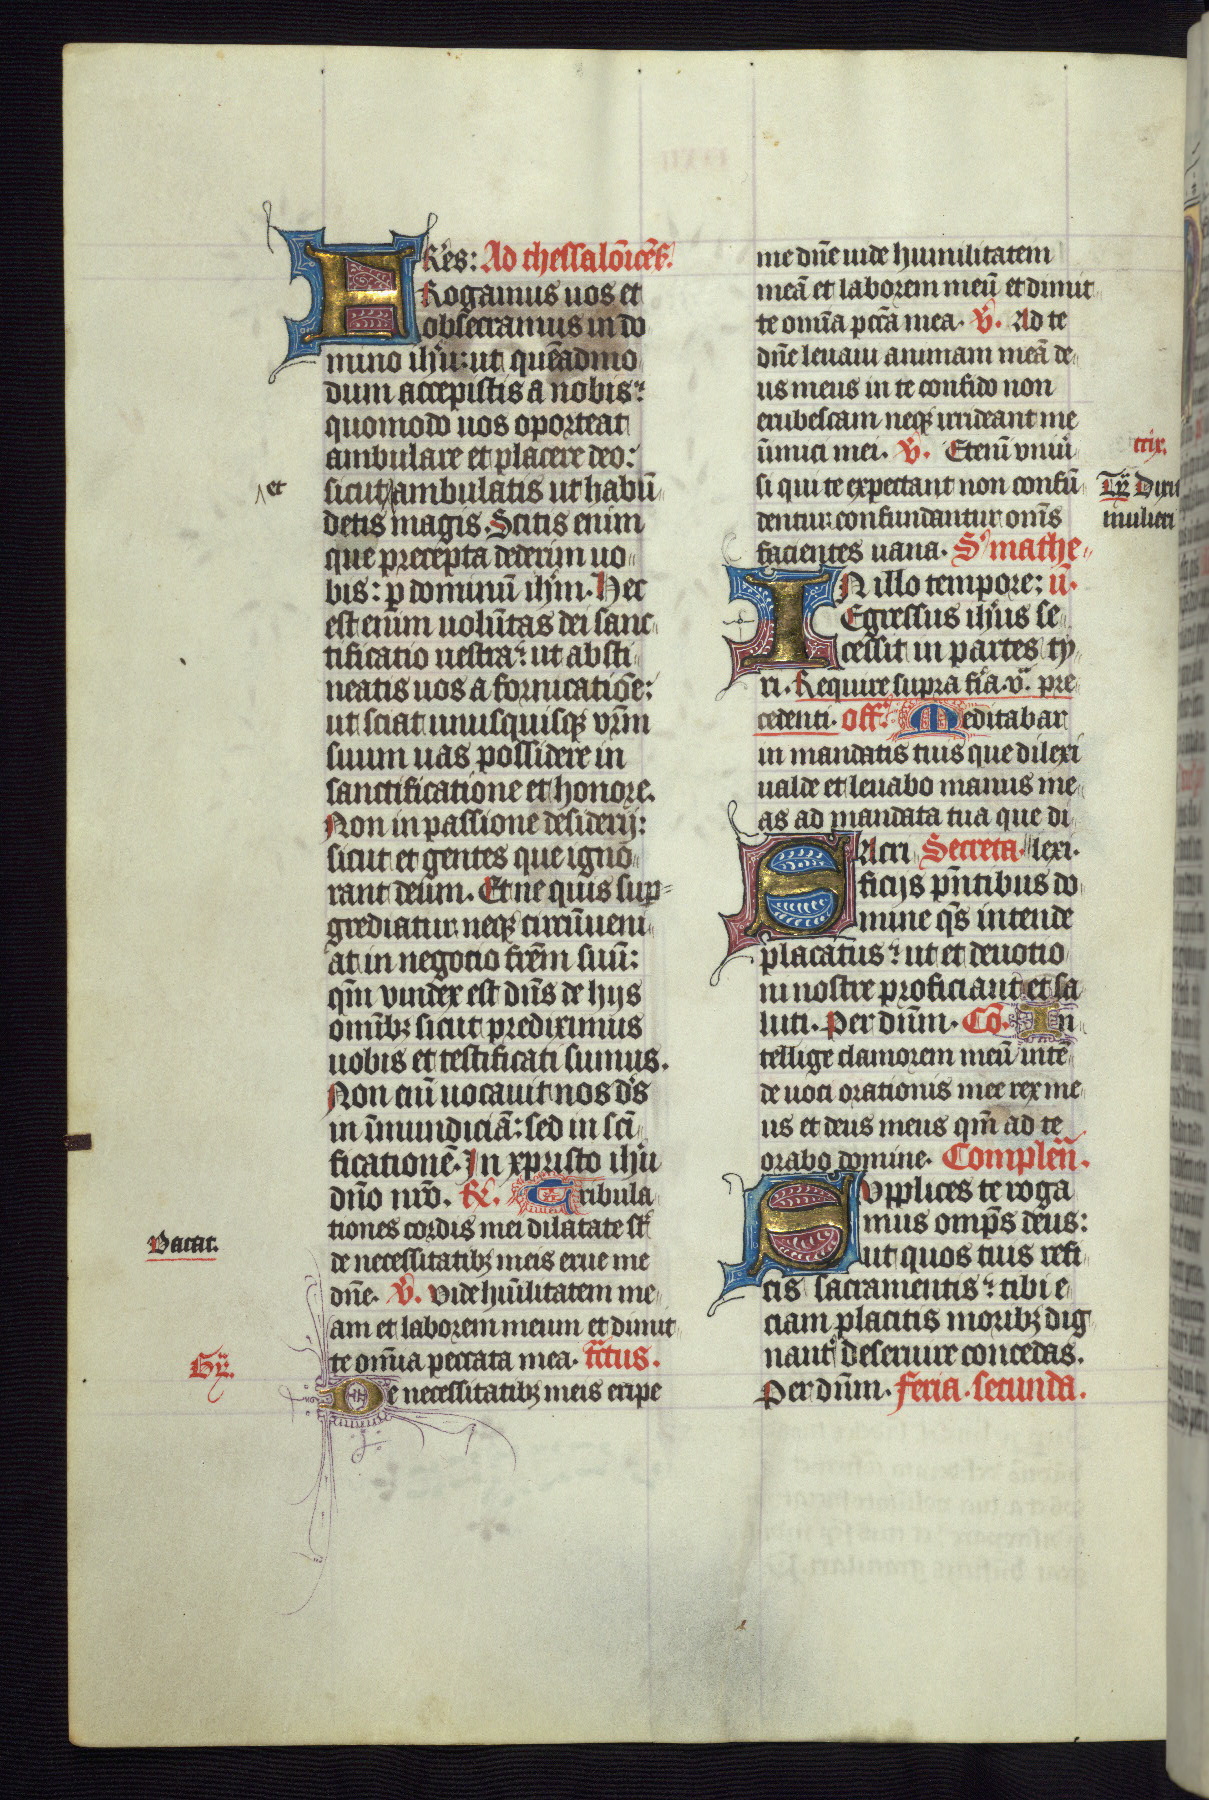 FRes: Ad thessaloīcēs.
Rogamus uos et
obsecramus in do
mino ihū: ut quēadmo
dum accepistis a nobis:
quomodo uos oporteat
ambulare et placere deo:
et
sicut ambulatis ut habū
detis magis. Scitis enim
que precepta dederim uo
bis: p dominū ihm. Hec
est enim uolūtas dei sanc
tificatio uestra: ut absti
neatis uos a fornicatiōe:
ut sciat unusquisq; vrm
suum uas possidere in
sanctificatione et honore.
Non in passione desiderij:
sicut et gentes que igno
rant deum. Et ne quis sup
grediatur neq; circūueni
at in negotio frēm suū:
qm vindex est dns de hijs
omīb; sicut prediximus
uobis et testificati sumus.
Non eiū uocauit nos ds
in īmundiciā: sed in scī
ficationē. In xpristo ihu
dño nrō. R. Tribula
tiones cordis mei dilatate sūt
Vacat.
de necessitatib; meis erue me
dñe. V. Vide hūilitatem me
am et laborem meum et dimit
te omīa peccata mea. trctus.
De necessitatib; meis eripe
me dñe uide humilitatem
meā et laborem meū et dimit
te omīa pccā mea. V. Ad te
dñe leuaui animam meā de
us meus in te confido non
erubescam neq; irrideant me
īimici mei. V. Etenī vniū
ccix.
si qui te expectant non confū
Ty Dixit
dentur confundantur omīs
mulieri
facientes uana. S mathe
IN illo tempore: ū.
Egressus ihus se
cessit in partes ty
ri. Require supra fīa. v. pre
cedenti. off. Meditabar
in mandatis tuis que dilexi
ualde et leuabo manus me
as ad mandata tua que di
SAcri Secreta. lexi.
ficijs pñtibus do
mine qs intende
placatus: ut et deuotio
ni nostre proficiant et sa
luti. Per dñm. Cō. In
tellige clamorem meū intē
de uoci orationis mee rex me
us et deus meus qm ad te
orabo domine. Complen.
SVpplices te roga
mus omps deus:
ut quos tuis refi
cis sacramentis: tibi e
ciam placitis morib; dig
nant deseruire concedas.
Per dñm. feria. secunda.